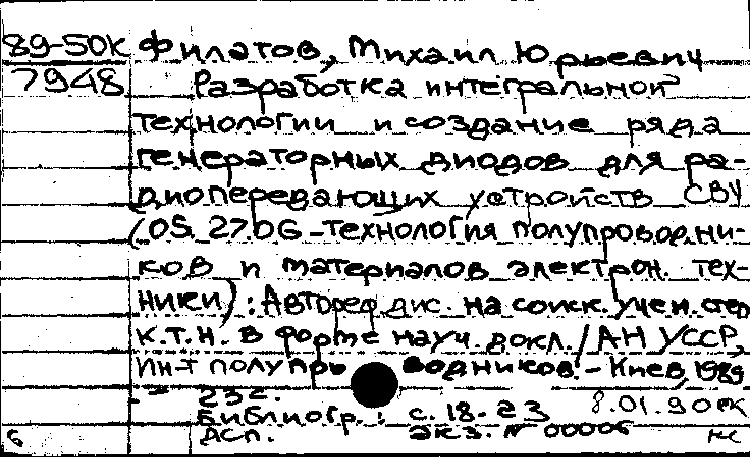 89-50к Филатов, Михаил Юрьевич
7948 Разработка интегральной
технологии и создание ряда
генераторных диодов для ра-
диопередающих устройств СВЧ
(05.27.06 - технология полупроводни-
ков и материалов электрон. тех-
ники): Автореф. дис. на соиск. учен. степ
к.т.н. в форме науч. докл. / АН УССР,
Ин-т полупроводников. - Киев, 1989
23 с.
Библиогр.: с. 18-23 8.01.90
Асп. экз. № 00006 нс
6